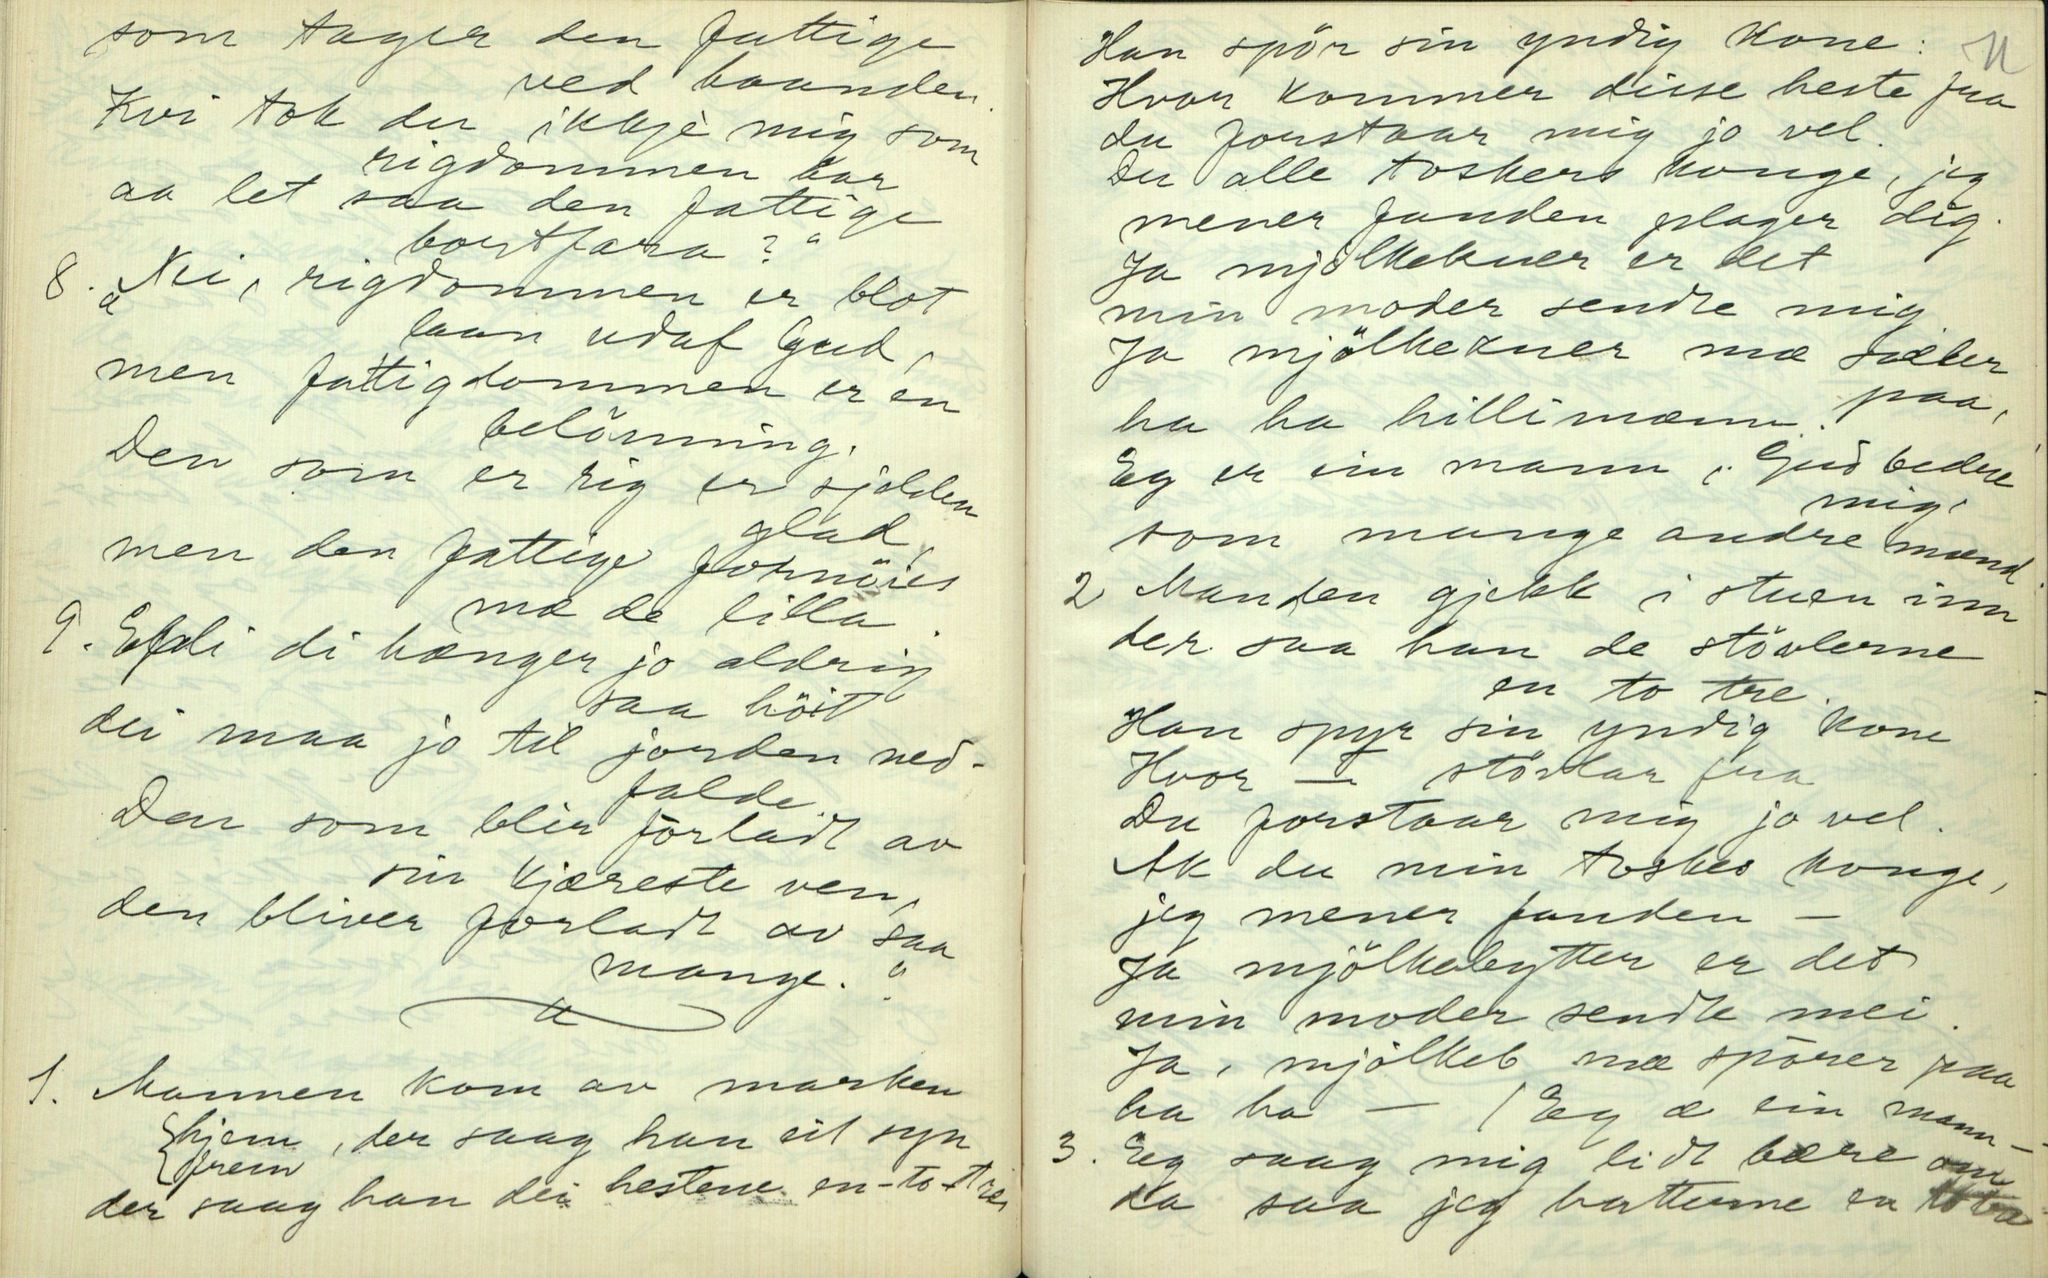 som tager den fattige
ved haanden.
Kvi tok du ikkje mig som
rigdommen har
aa let saa den fattige
bortfara?"
8. "Nei, rigdommen er blot
laan udaf Gud,
men fattigdommen er en
belönning.
Den som er rig er sjelden
glad,
men den fattige fornöies
mæ de lilla.
9. Efdi di hænger jo aldrig
saa höit
dei maa jo til jorden ned-
falde.
Den som blir forladt av
sin kjæreste ven,
den bliver forladt av saa
mange."
1. Mannen kom av marken
hjem, der saag han eit syn
frem
der saag han dei hestene en-to-tre
11
Han spör sin yndig kone:
Hvor kommer disse heste fra
du forstaar mig jo vel.
Du alle toskers konge, jeg
mener fanden plager dig.
Ja mjölkekuer er det
min moder sendte mig
Ja mjölkekuer mæ sæler
paa,
ha ha hillimænn.
Eg er ein mann, Gud bedre
mig,
som mange andre mænd.
2 Manden gjekk i stuen inn
der saa han de stövlerne
en to tre.
Han spyr sin yndig kone
Hvor — stövlar fra
Du forstaar mig jo vel.
Ak du min toskes konge,
jeg mener fanden —
Ja mjölkebytter er det
min moder sendte mei.
Ja, mjölkeb mæ sporer paa
ha ha — / Eg æ ein mann —
3. Eg saag mig lidt bære om
da saa jeg hatterne en to tre